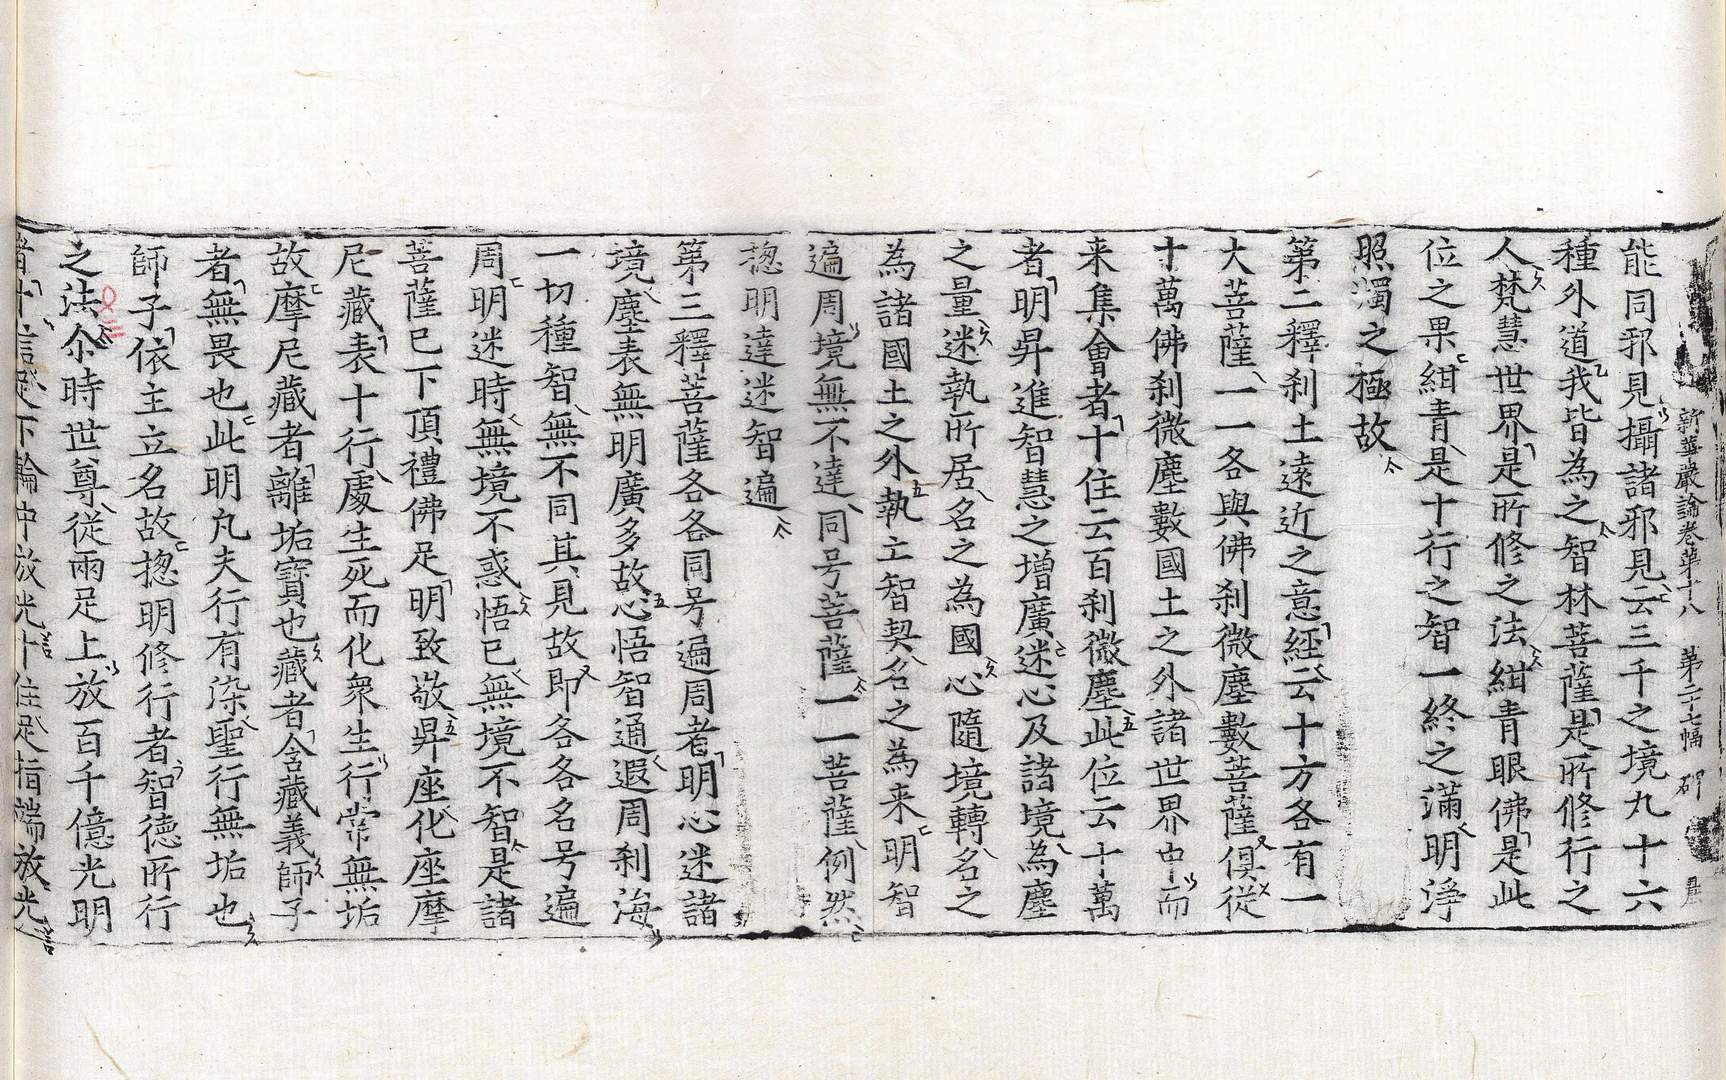 新華嚴論卷第十八　第二十七幅
能同邪見攝諸邪見云三千之境九十六
種外道我皆為之智林菩薩是所修行之
人梵慧世界是所修之法紺青眼佛是此
位之果紺青是十行之智一終之滿明淨
照濁之極故
第二釋刹土遠近之意經云十方各有一
大菩薩一一各與佛刹微塵數菩薩俱從
十萬佛刹微塵數國土之外諸世界中而
来集會者十住云百刹微塵此位云十萬
者明昇進智慧之增廣迷心及諸境為塵
之量迷執所居名之為國心隨境轉名之
為諸國土之外執亡智契名之為来明智
遍周境無不達同号菩薩一一菩薩例然
揔明達迷智遍
第三釋菩薩各各同号遍周者明心迷諸
境塵表無明廣多故心悟智通遐周刹海
一切種智無不同其見故即各各名号遍
周明迷時無境不惑悟已無境不智是諸
菩薩已下頂禮佛足明致敬昇座化座摩
尼藏表十行處生死而化衆生行常無垢
故摩尼藏者離垢寶也藏者含藏義師子
者無畏也此明凡夫行有染聖行無垢也
師子依主立名故揔明修行者智德所行
之法尒時世尊從兩足上放百千億光明
者十信足下輪中放光十住足指端放光